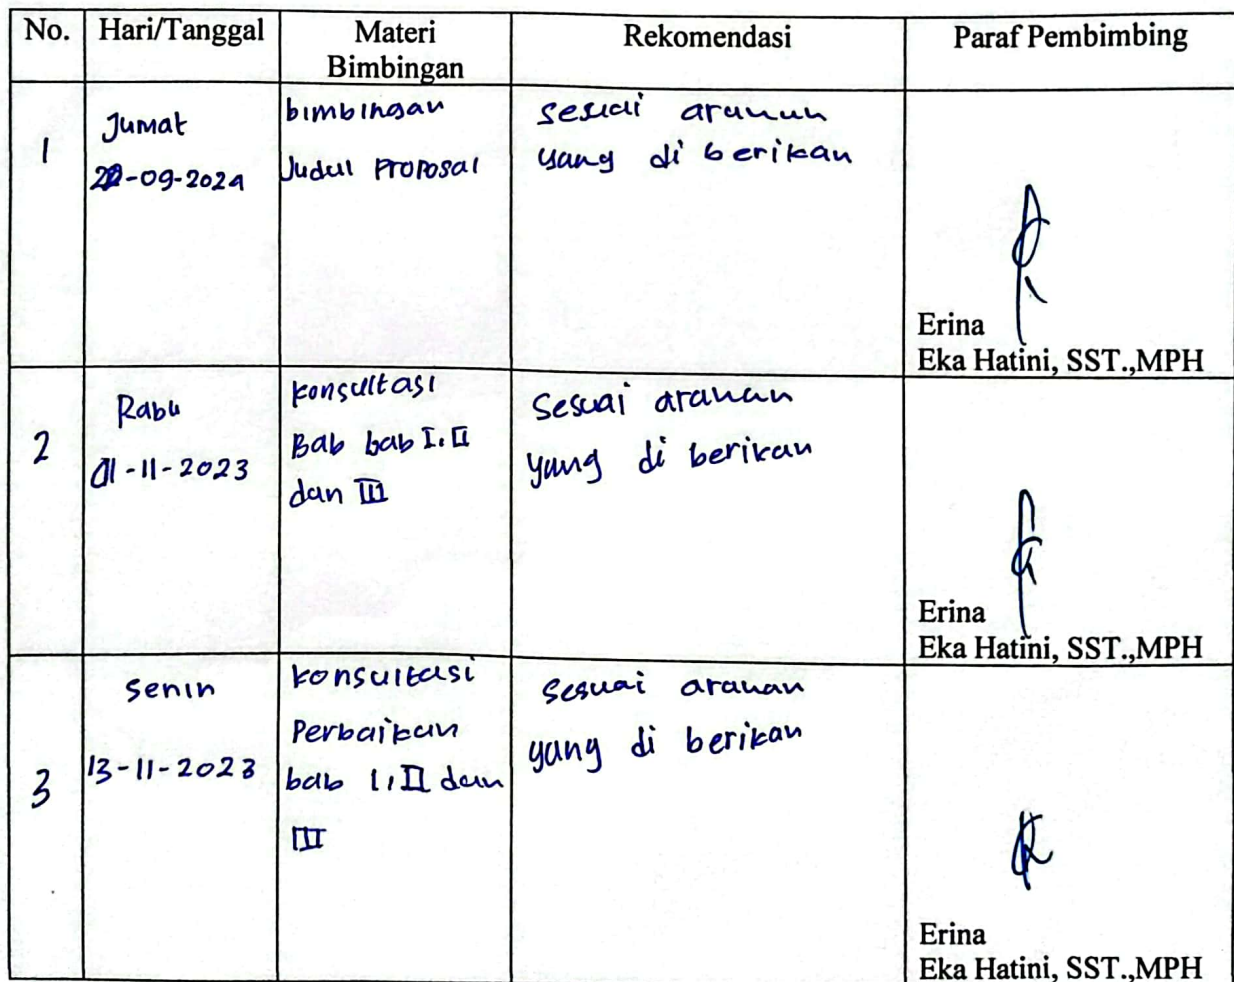 No. Hari/Tanggal Materi Bimbingan Rekomendasi Paraf Pembimbing
1
Jumat
22-09-2024
bimbingan
Judul Proposal
sesuai arahan
yang di berikan
Erina
Eka Hatini, SST.,MPH
2
Rabu
01-11-2023
konsultasi
Bab bab I, II
dan III
Sesuai arahan
yang di berikan
Erina
Eka Hatini, SST.,MPH
3
Senin
13-11-2023
konsultasi
Perbaikan
bab I, II dan
III
sesuai arahan
yang di berikan
Erina
Eka Hatini, SST.,MPH